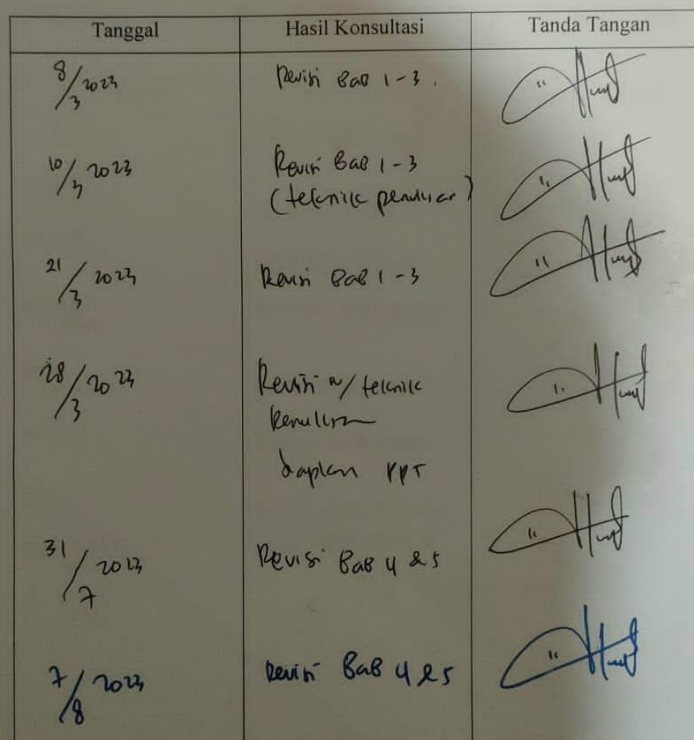 Tanggal Hasil Konsultasi Tanda Tangan
8/3 2023 Revisi Bab 1-3.
10/3 2023 Revisi Bab 1-3
(teknik penulisan)
21/3 2023 Revisi Bab 1-3
28/3 2023 Revisi w/ teknik
Penulisan
Siapkan PPT
31/7 2023 Revisi Bab 4 & 5
7/8 2023 Revisi Bab 4 & 5